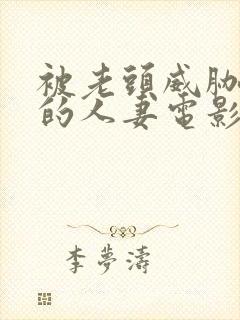 被老頭威胁
的人妻電影
李夢濤